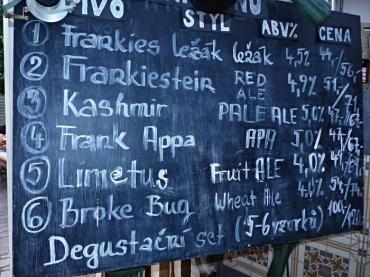 STYL ABV% CENA
1 Frankies ležák ležák 4,5% 44,-/56,-
2 Frankiestein RED ALE 4,9% 51/
3 Kashmir PALE ALE 5,0% 47,-/67,-
4 Frank Appa APA 5,0%
5 Limetus Fruit ALE 4,0%
6 Broke Bug Wheat Ale 4.0% 54,-/74,-
Degustační set (5-6 vzorků) 100,-/120,-